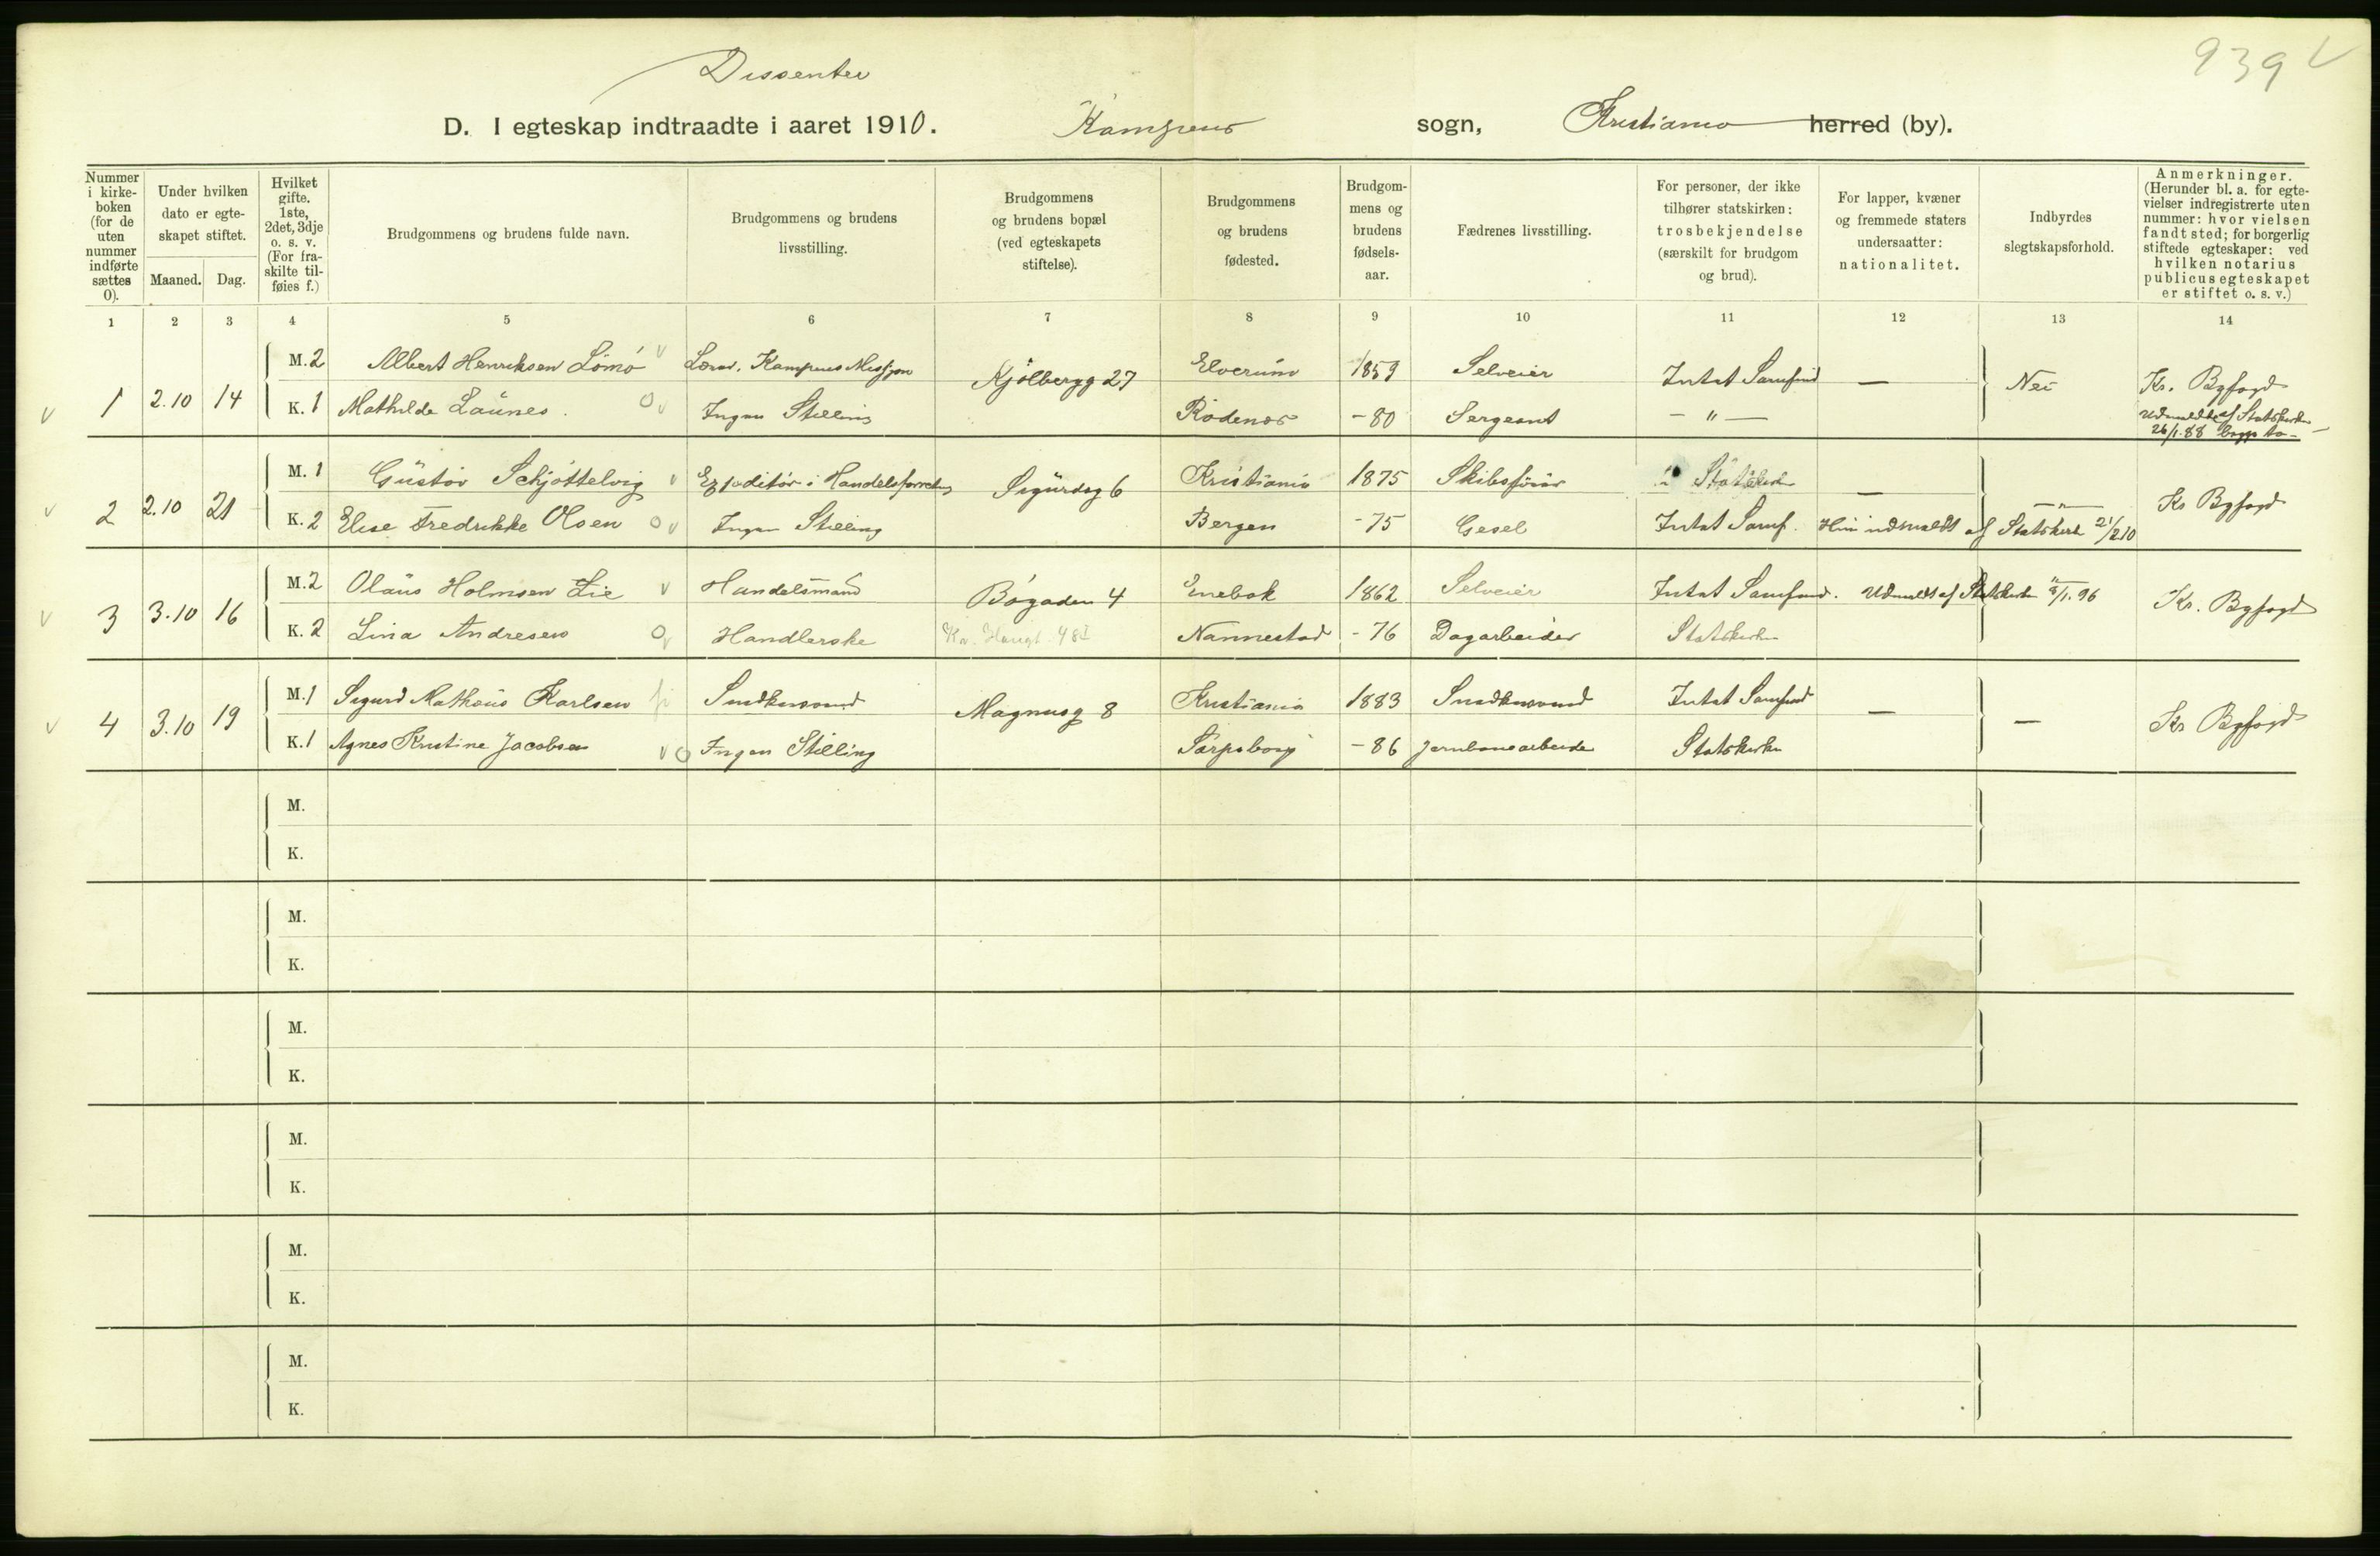 939 V
Dissenter
D. I egteskap indtraadte i aaret 1910. Kampens sogn, Kristiania herred (by).
Nummer i kirke-boken (for de uten nummer indførte sættes 0).
Under hvilken dato er egte-skapet stiftet.
Maaned. Dag.
Hvilket gifte. 1ste, 2det, 3dje o. s. v. (For fra-skilte til-føies f.)
Brudgommens og brudens fulde navn.
Brudgommens og brudens livsstilling.
Brudgommens og brudens bopæl (ved egteskapets stiftelse).
Brudgommens og brudens fødested.
Brudgom-mens og brudens fødsels-aar.
Fædrenes livsstilling.
For personer, der ikke tilhører statskirken: trosbekjendelse (særskilt for brudgom og brud).
For lapper, kvæner og fremmede staters undersaatter: nationalitet.
Indbyrdes slegtskapsforhold.
Anmerkninger. (Herunder bl. a. for egte-vielser indregistrerte uten nummer: hvor vielsen fandt sted; for borgerlig stiftede egteskaper: ved hvilken notarius publicus egteskapet er stiftet o. s. v.)
1 2 3 4 5 6 7 8 9 10 11 12 13 14
M. 2 Albert Henriksen Lömo v Kampens Elverum 1859 Selveier Intet Samfund
v 1 2.10 14 Kjölbergg 27 — Nei Kr. Bgfogd
K. 1 Mathilde Launes. O v Ingen Stilling Rödenes - 80 Sergeant - " - Udmeldt af Statskirken
26/1.88
M. 1 Gustav Schjöttelvig v Expeditör i Handelsforretn Kristiania 1875 Skibsförer Statskirk
v 2 2.10 21 Sigurdsg 6 — - " - Kr Bgfogd
K. 2 Elise Fredrikke Olsen O v Ingen Stilling Bergen - 75 Gesel Intet Samf. Hun udmeldt af Statskirk 21/2 10
M. 2 Olaus Holmsen Lie v Handelsmand Enebak 1862 Selveier Intet Samfund. Udmeldt af Statskirken /1.96
v 3 3.10 16 Bögaden 4 Kr. Bgfogd
K. 2 Lina Andresen O v Handlerske Nannestad - 76 Dagarbeider Statskirken
M. 1 Sigurd Mathæus Karlsen Snedkersvend Kristiania 1883 Snedkersvend Intet Samfund
v 4 3.10 19 Magnusg 8 — — Kr Bgfogd
K. 1 Agnes Kristine Jacobsen v O Ingen Stilling Sarpsborg - 86 Jernbanearbeider Statskirken
M.
K.
M.
K.
M.
K.
M.
K.
M.
K.
M.
K.